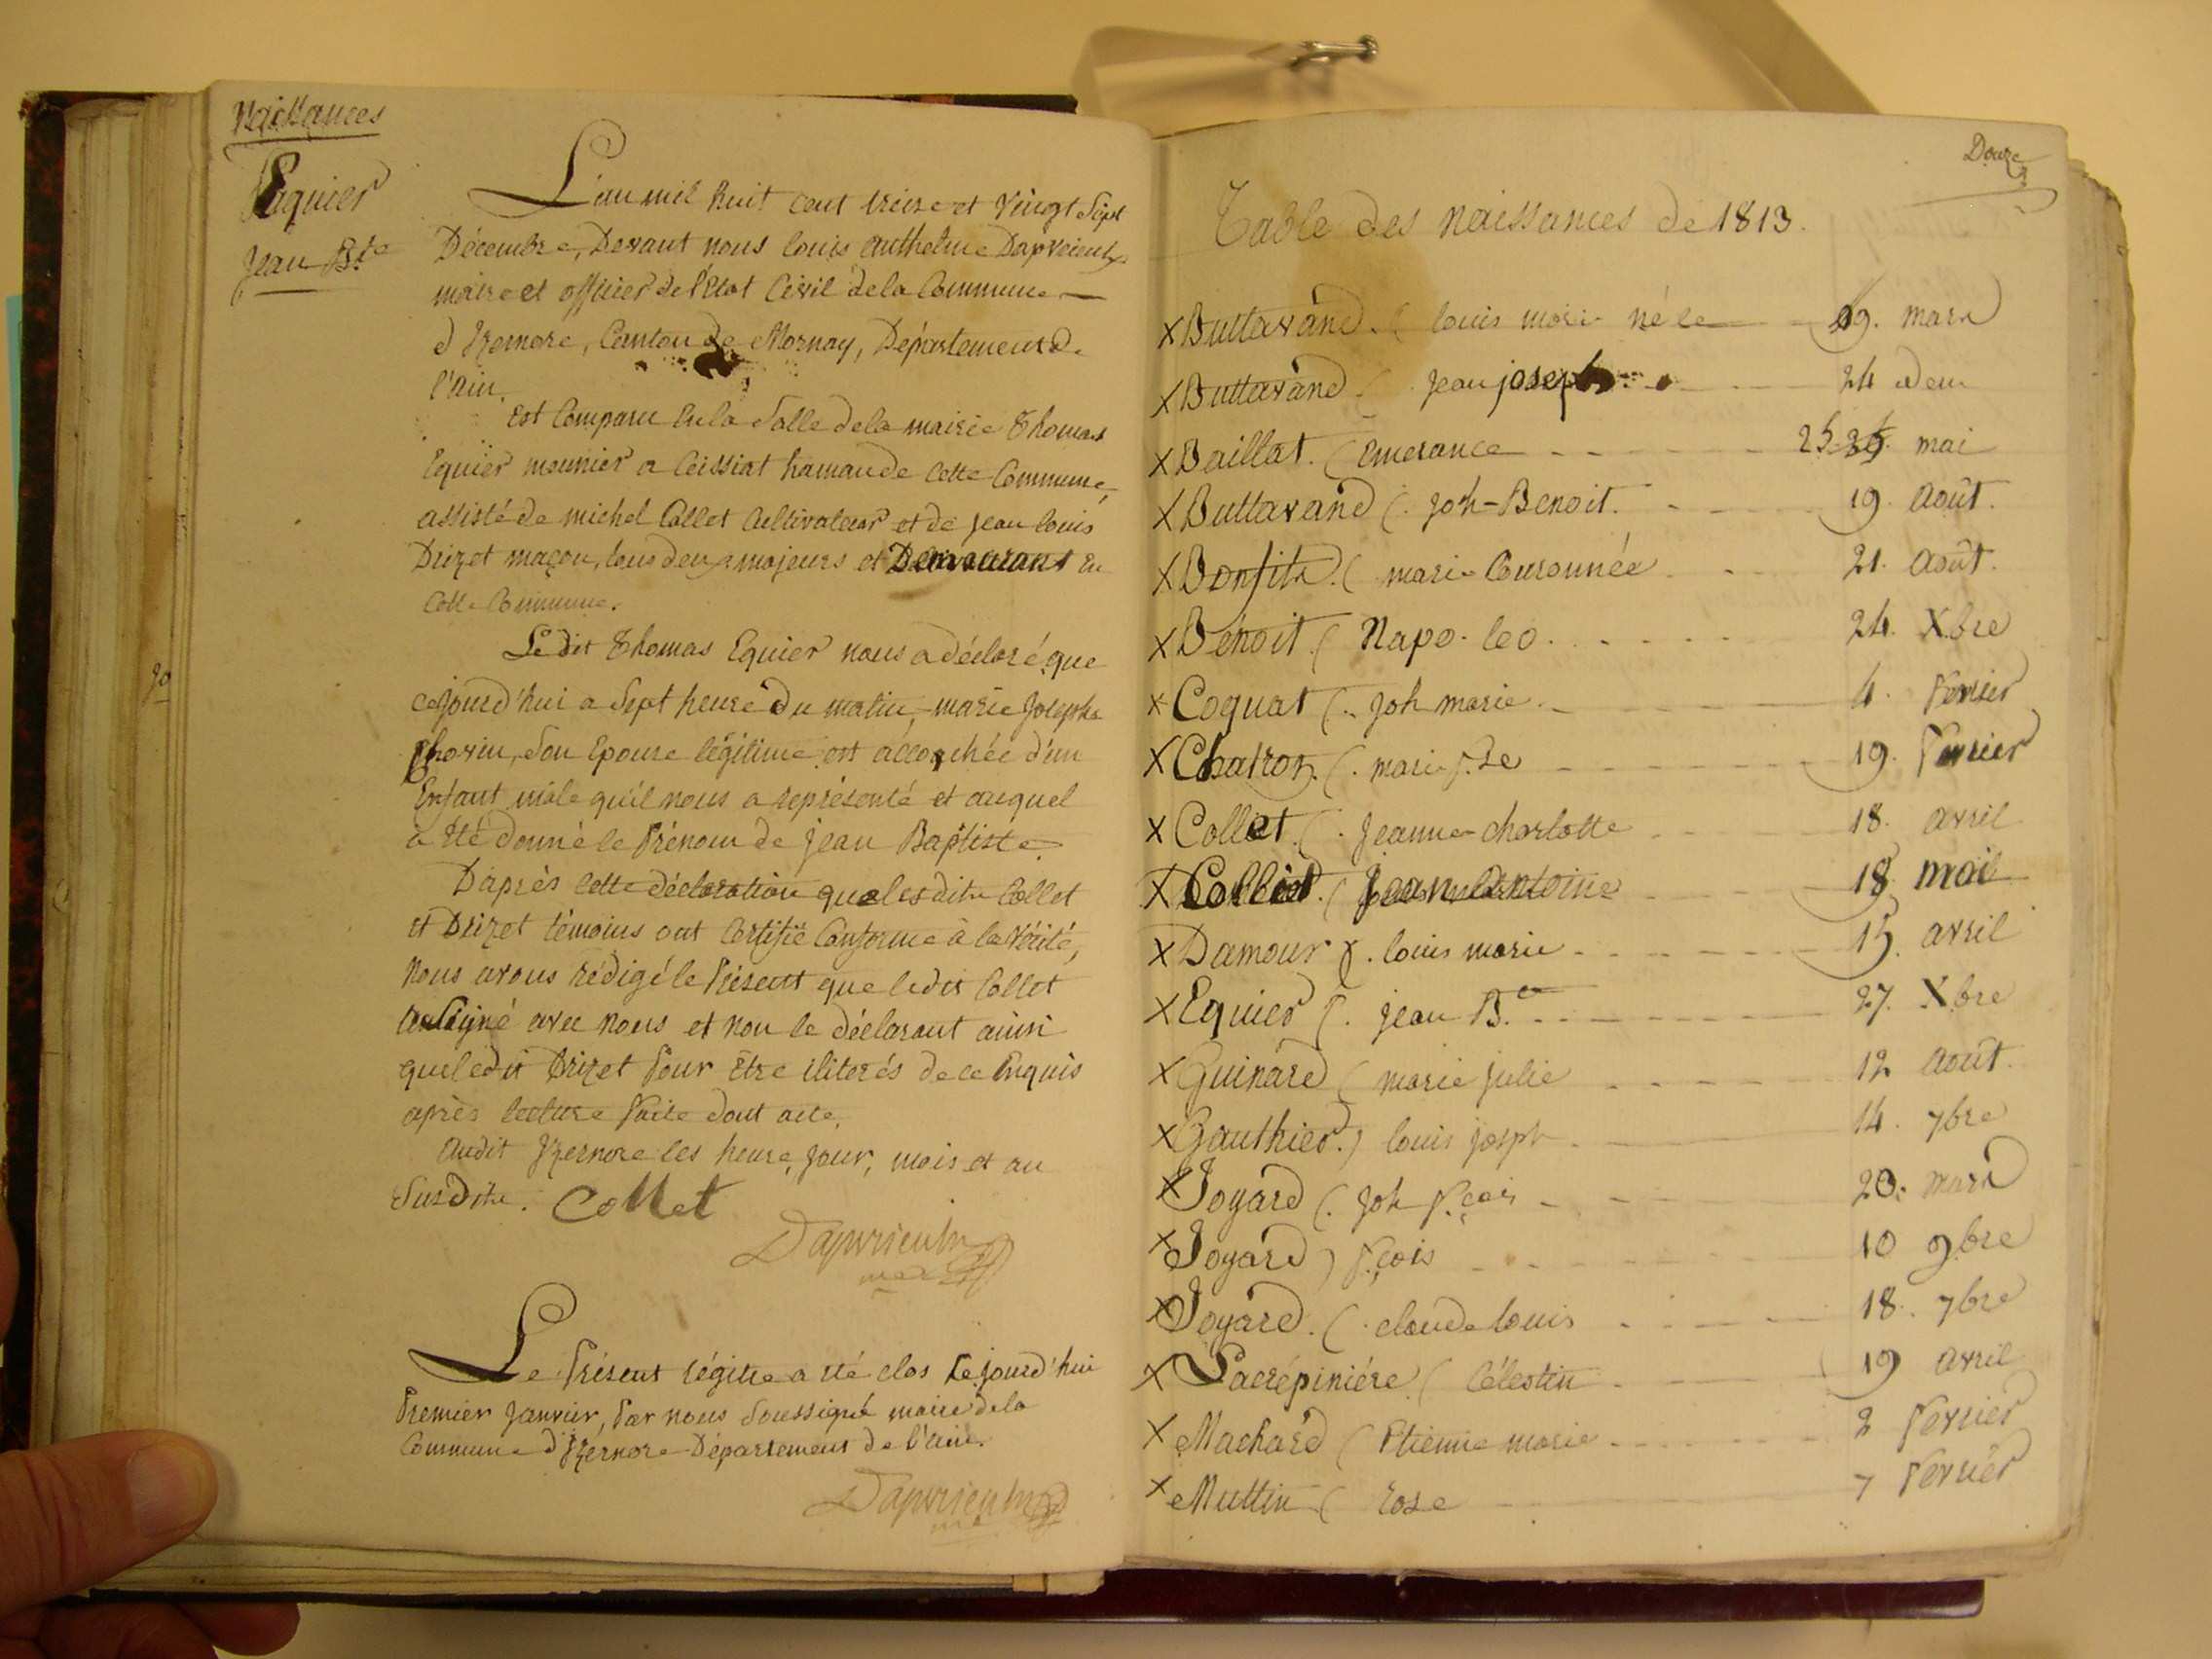 Naissances
Equier
Jean Bte
L'an mil huit cent treize et vingt Sept
Décembre, Devant nous louis anthelme Dapvrieulx
maire et officier de l'Etat Civil de la Commune
d'Izernore, Canton de Mornay, Département de
l'ain.
Est Comparu en la Salle de la mairie Thomas
Equier meunier a Ceissiat hamau de cette Commune,
assisté de michel Collet Cultivateur et de jean louis
Drizet maçon, tous deux majeurs et Demeurant en
Cette Commune.
Le dit Thomas Equier nous a déclaré que
cejourd'hui a Sept heure du matin, marie Josephe
Son Epouse légitime est accouchée d'un
Enfant mâle qu'il nous a représenté et auquel
a été donné le Prénom de jean Baptiste.
D'après cette déclaration que lesdits Collet
et Drizet témoins ont Certifié Conforme à la vérité,
Nous avons rédigé le Présent que ledit Collet
a Signé avec nous et non le déclarant ainsi
que ledit Drizet pour être iliterés de ce Enquis
après lecture faite dont acte.
Audit Izernore les heure, jour, mois et an
Susdits. Collet
Dapvrieulx
Le Présent régitre a été clos Le jourd'hui
Premier Janvier, Par nous Soussigné maire de la
Commune d'Izernore Département de l'ain.
Dapvrieulx
30
Douze
Table des Naissances de 1813.
x Buttavand. ( louis marie né le 19. mars
x Buttavand ( jean joseph 24 idem
x Baillat. ( Emerance 25 25. mai
x Buttavand (. joh-Benoit. 19. Août.
x Bonfils. ( marie Couronnée 21. Août.
x Benoit ( Napo-leo. 24. Xbre
x Coquat (. joh marie. 4. Fevrier
x Chatron (. marie f.se 19. Fevrier
x Collet. (. jeanne charlotte 18. avril
x Collet. ( Jean Antoine 18 mai
x Damour (. louis marie 15. avril
x Equier (. jean B.te 27. Xbre
x Guinard ( marie julie 12 Août.
x Gauthier. ) louis josph 14. 7bre
x Joyard (. joh f.çois 20. mars
x Joyard ) f.çois 10 9bre
x Joyard. (. claude louis 18. 7bre
x Lacrépinière ( Célestin 19 avril
x Machard ( Etienne marie 2 Fevrier
x Muttin ( rose 7 Fevrier